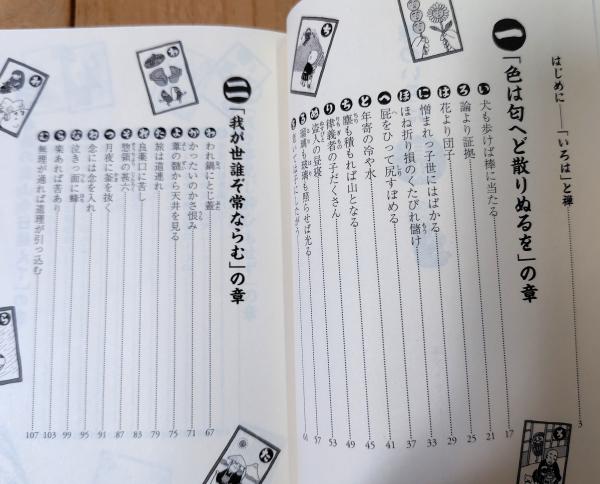 はじめに――「いろは」と禅 3
一 「色は匂へど散りぬるを」の章
い 犬も歩けば棒に当たる 17
ろ 論より証拠 21
は 花より団子 25
に 憎まれっ子世にはばかる 29
ほ ほね折り損のくたびれ儲け 33
へ 屁をひって尻すぼめる 37
と 年寄の冷や水 41
ち 塵も積もれば山となる 45
り 律義者の子だくさん 49
ぬ 盗人の昼寝 53
る 瑠璃も玻璃も照らせば光る 57
を 老いては子にしたがう 61
二 「我が世誰ぞ常ならむ」の章
わ われ鍋にとじ蓋 67
か かったいのかさ恨み 71
よ 葦の髄から天井を見る 75
た 旅は道連れ 79
れ 良薬口に苦し 83
そ 惣領の甚六 87
つ 月夜に釜を抜く 91
ね 念には念を入れ 95
な 泣きっ面に蜂 99
ら 楽あれば苦あり 103
む 無理が通れば道理が引っ込む 107
ち
わ
ろ
た